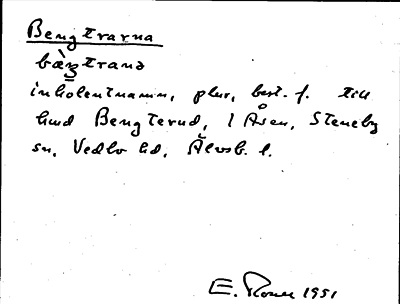 Bengtrarna
bæ̀ŋtrana
inkolentnamn, plur, best. f. till
hmd Bengterud, 1 Åsen, Steneby
sn, Vedbo hd, Älvsb. l.
E. 1951